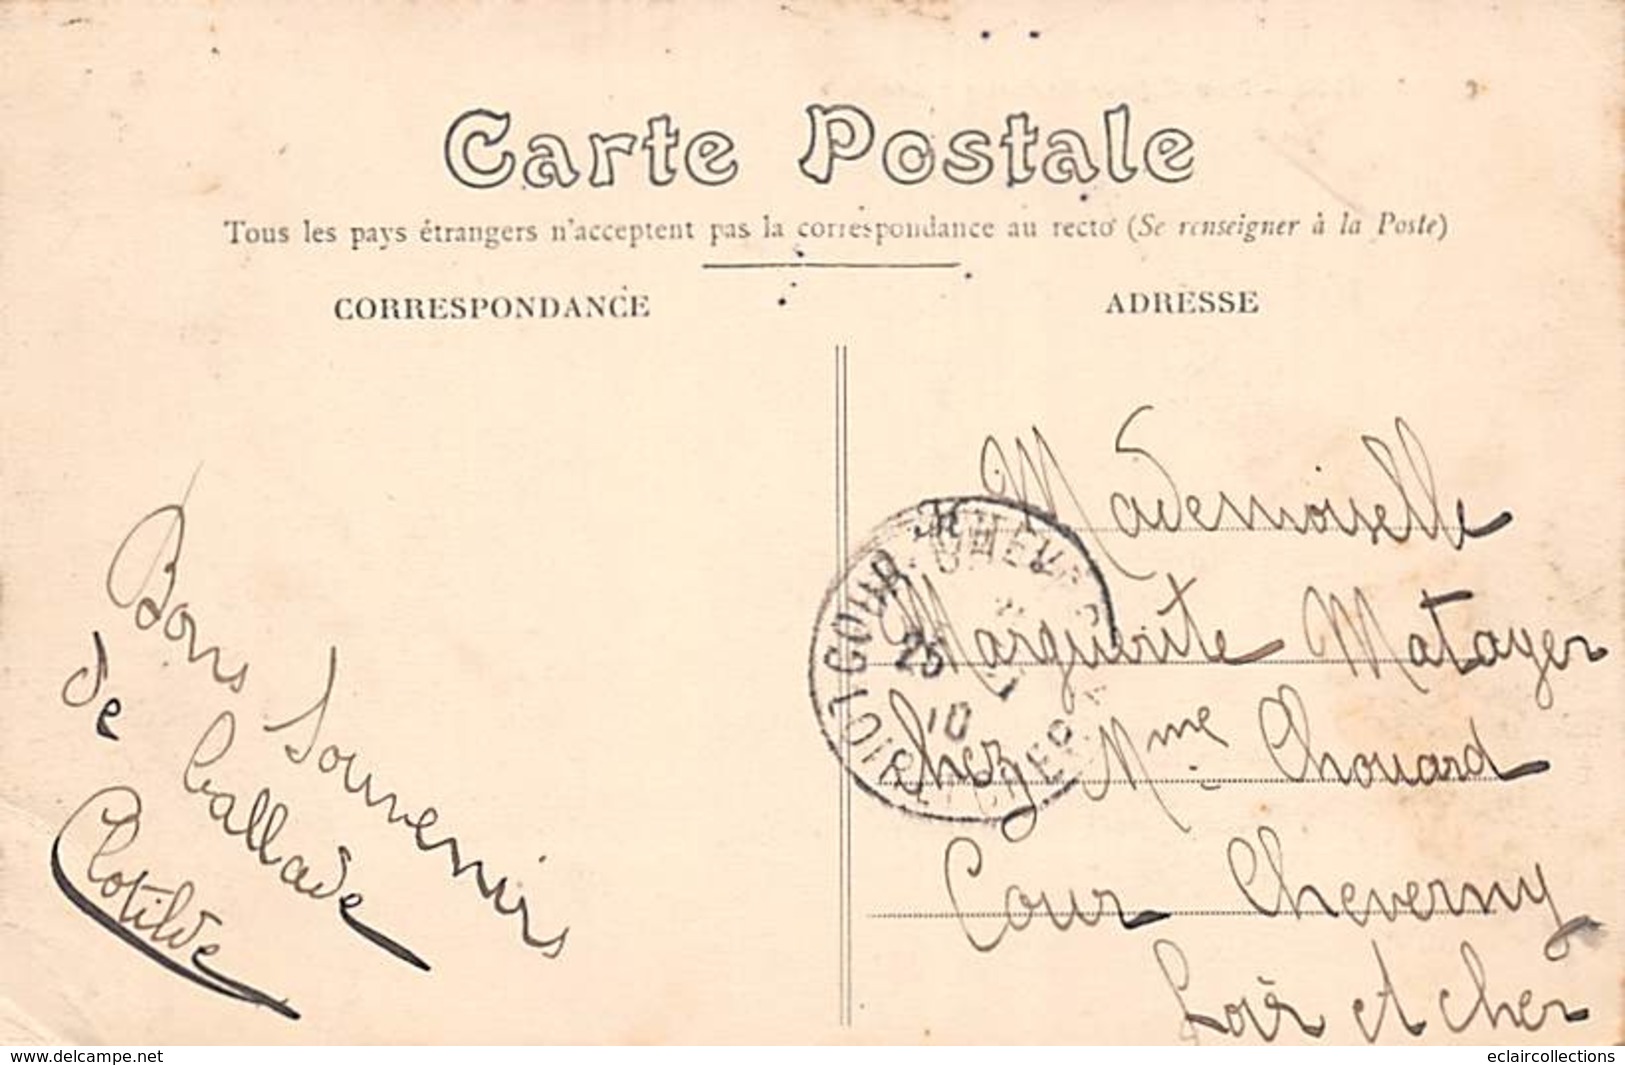 Carte Postale
Tous les pays étrangers n'acceptent pas la correspondance au recto (Se renseigner à la Poste)
CORRESPONDANCE
ADRESSE
Bons Souvenirs
de ballade
Clotilde
Mademoiselle
Marguerite Matayer
chez Mme Chouard
Cour Cheverny
Loir et cher
COUR-CHEV
25
10
www.delcampe.net
eclaircollections